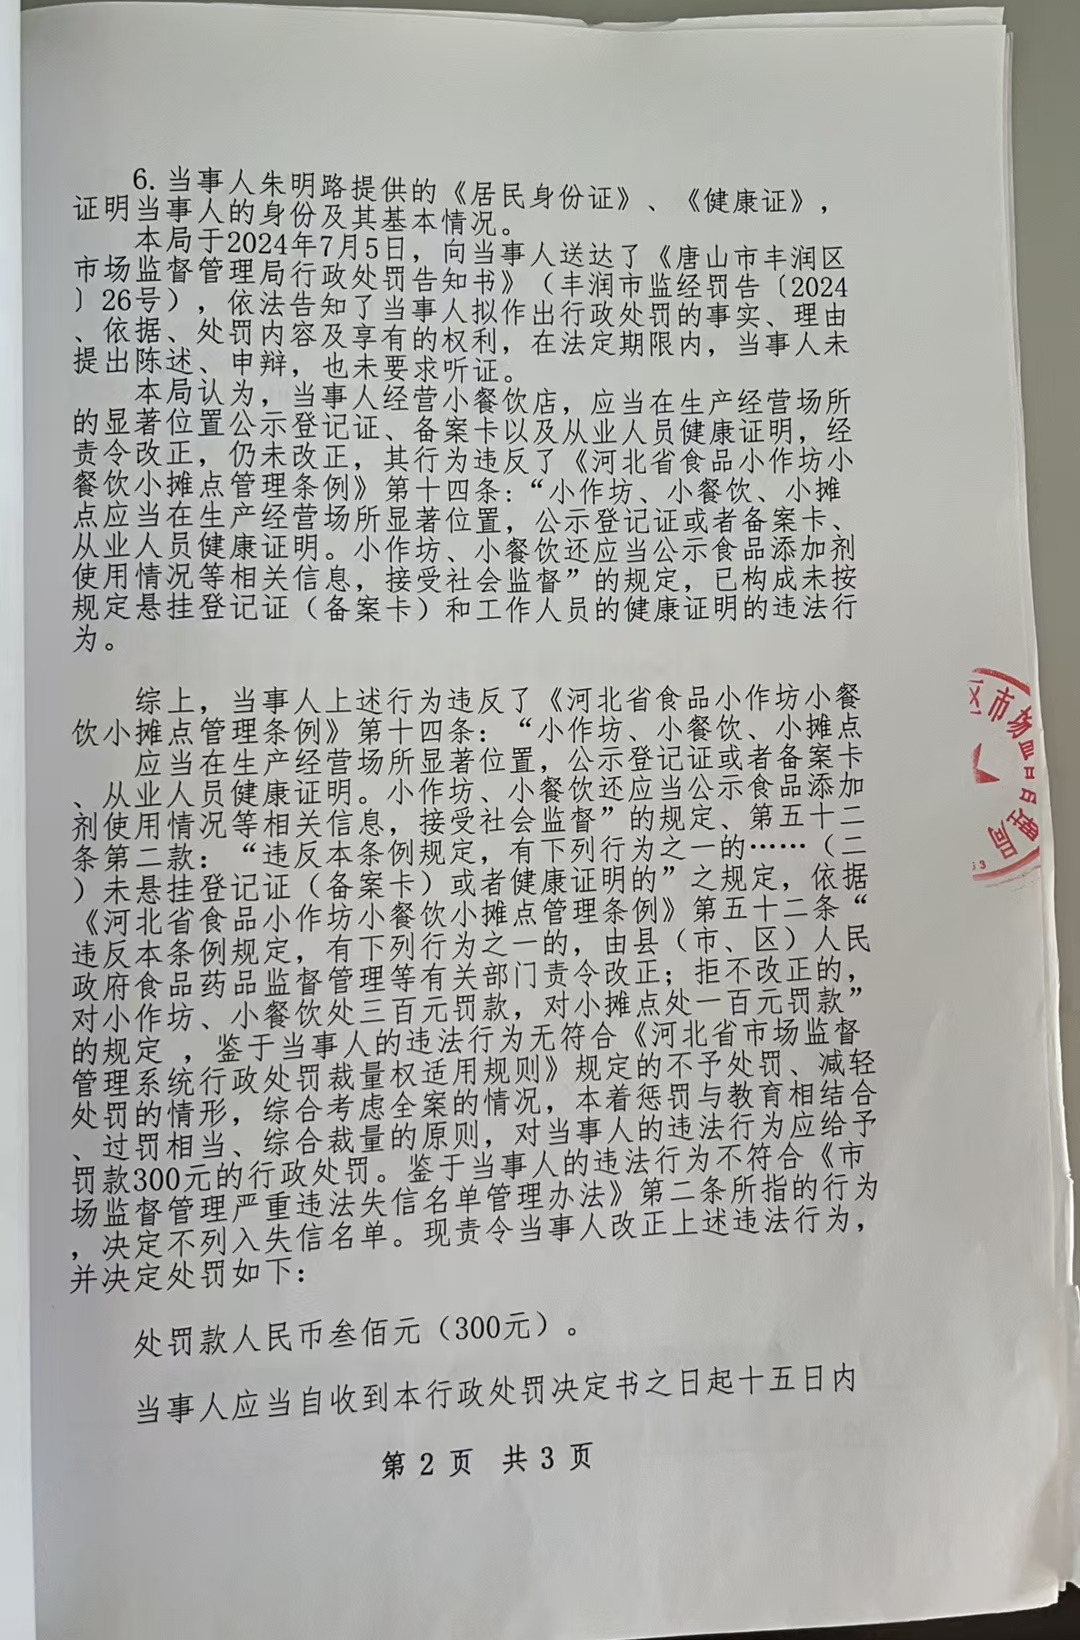 6.当事人朱明路提供的《居民身份证》、《健康证》,
证明当事人的身份及其基本情况。
本局于2024年7月5日,向当事人送达了《唐山市丰润区
市场监督管理局行政处罚告知书》(丰润市监经罚告〔2024
〕26号),依法告知了当事人拟作出行政处罚的事实、理由
、依据、处罚内容及享有的权利,在法定期限内,当事人未
提出陈述、申辩,也未要求听证。
本局认为,当事人经营小餐饮店,应当在生产经营场所
的显著位置公示登记证、备案卡以及从业人员健康证明,经
责令改正,仍未改正,其行为违反了《河北省食品小作坊小
餐饮小摊点管理条例》第十四条:“小作坊、小餐饮、小摊
点应当在生产经营场所显著位置,公示登记证或者备案卡、
从业人员健康证明。小作坊、小餐饮还应当公示食品添加剂
使用情况等相关信息,接受社会监督”的规定,已构成未按
规定悬挂登记证(备案卡)和工作人员的健康证明的违法行
为。
综上,当事人上述行为违反了《河北省食品小作坊小餐
饮小摊点管理条例》第十四条:“小作坊、小餐饮、小摊点
应当在生产经营场所显著位置,公示登记证或者备案卡
、从业人员健康证明。小作坊、小餐饮还应当公示食品添加
剂使用情况等相关信息,接受社会监督”的规定、第五十二
条第二款:“违反本条例规定,有下列行为之一的……(二
)未悬挂登记证(备案卡)或者健康证明的”之规定,依据
《河北省食品小作坊小餐饮小摊点管理条例》第五十二条“
违反本条例规定,有下列行为之一的,由县(市、区)人民
政府食品药品监督管理等有关部门责令改正;拒不改正的,
对小作坊、小餐饮处三百元罚款,对小摊点处一百元罚款”
的规定 ,鉴于当事人的违法行为无符合《河北省市场监督
管理系统行政处罚裁量权适用规则》规定的不予处罚、减轻
处罚的情形,综合考虑全案的情况,本着惩罚与教育相结合
、过罚相当、综合裁量的原则,对当事人的违法行为应给予
罚款300元的行政处罚。鉴于当事人的违法行为不符合《市
场监督管理严重违法失信名单管理办法》第二条所指的行为
,决定不列入失信名单。现责令当事人改正上述违法行为,
并决定处罚如下:
处罚款人民币叁佰元(300元)。
当事人应当自收到本行政处罚决定书之日起十五日内
第 2 页 共 3 页
区市场
局